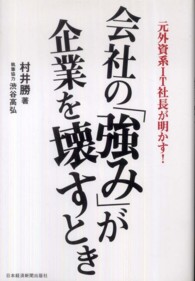 元外資系IT社長が明かす!
会社の「強み」が
企業を壊すとき
村井勝 著
執筆協力 渋谷高弘
日本経済新聞出版社